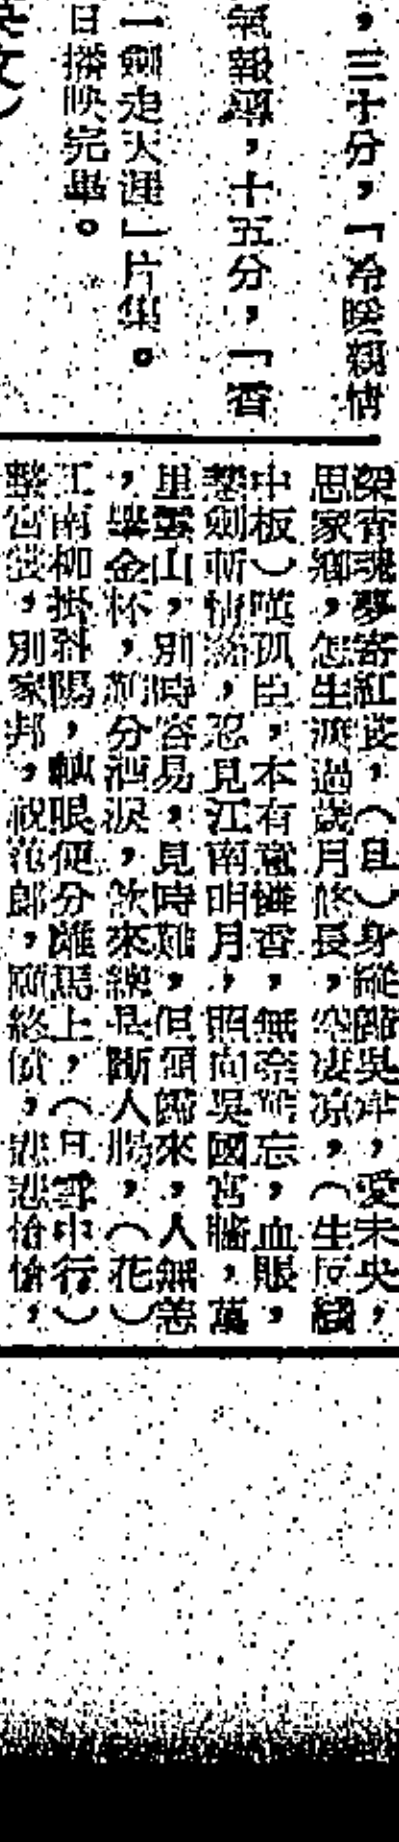 ，三十分，「冷暖親情
氣報導，十五分，「香
一劍走天涯」片集。
日播映完畢。
英文）
深宵魂夢寄紅萸，（旦）身縱歸吳岸，愛未央，
思家鄉，怎生渡過歲月修長，空淒凉，（生反綫
中板）嘆孤臣，本有意憐香，無奈難忘，血賬，
慧劍斬情絲，忍見江南明月，照向吳國宮牆，萬
里雲山，別時容易，見時難，但願歸來，人無恙
，舉金杯，分洒淚，飲來總是斷人腸，（花）
江南柳掛斜陽，轉眼便分離馬上，（旦雲中行）
整宮裝，別家邦，祝范郎，願終償，悲悲愴愴，